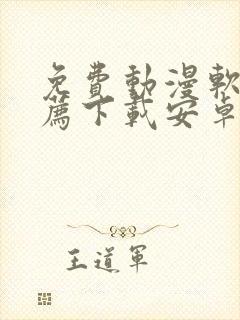 免費動漫軟
薦下載安卓
王道軍